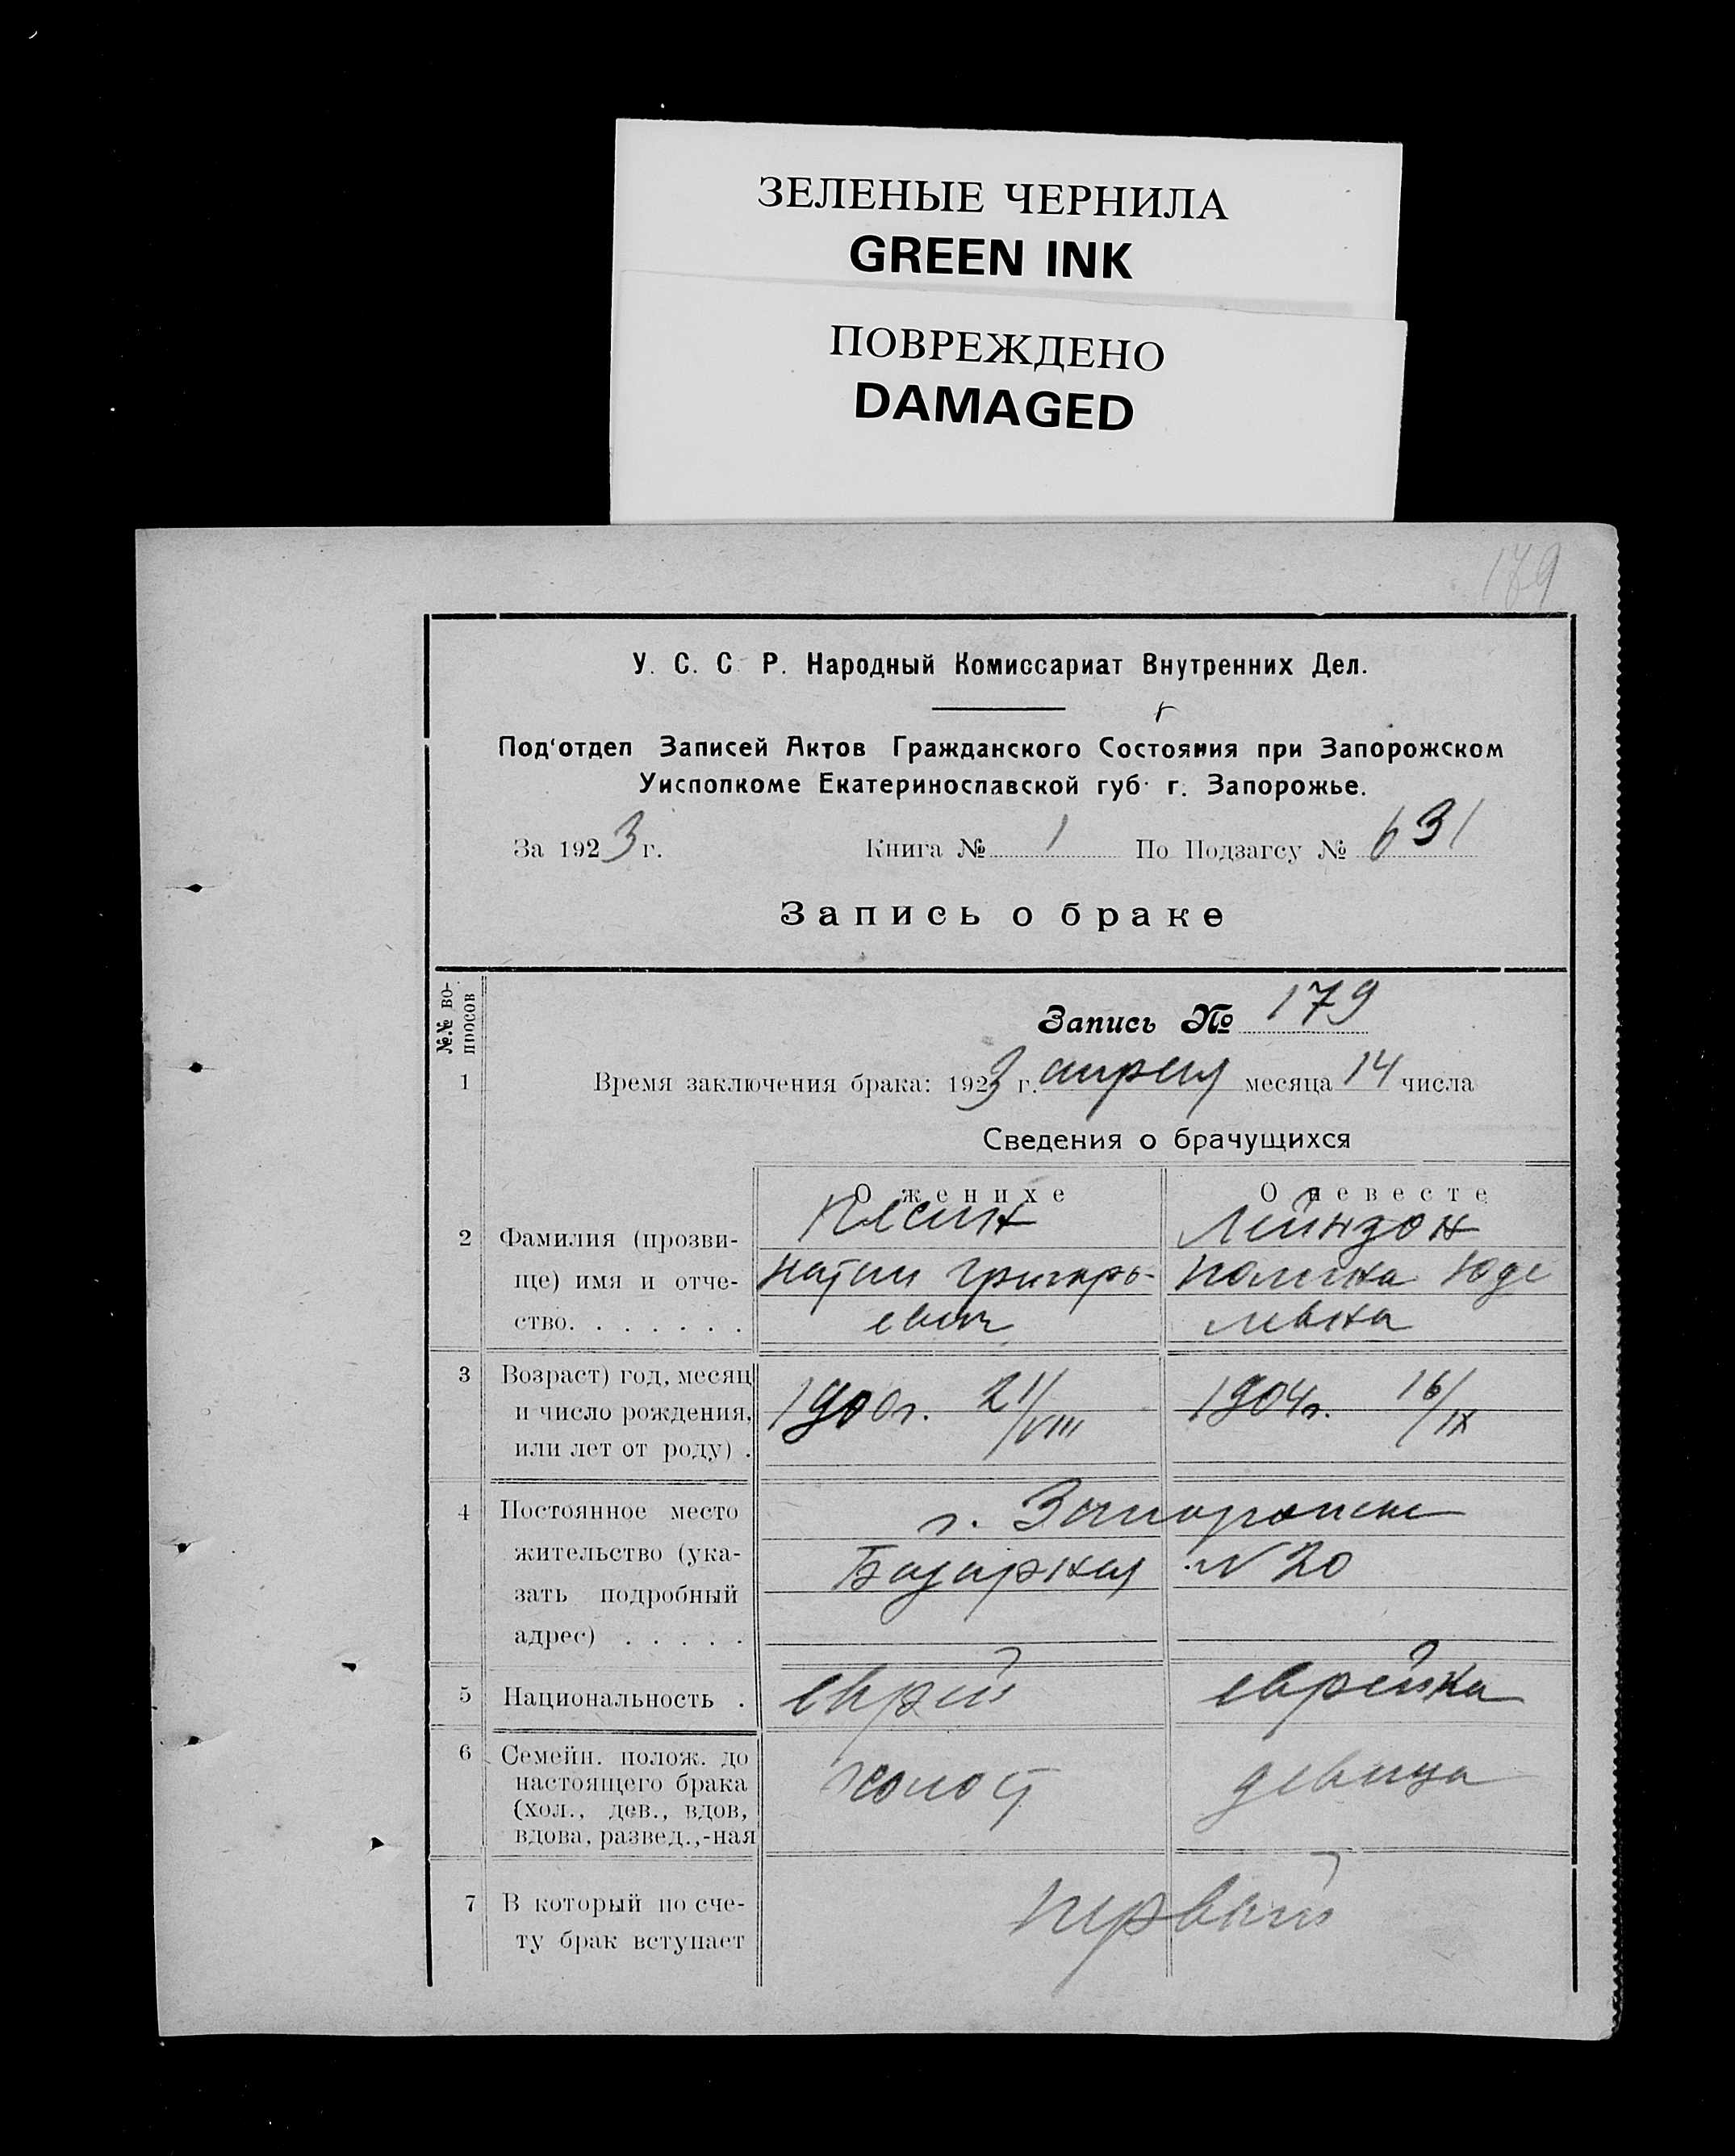 ЗЕЛЕНЫЕ ЧЕРНИЛА
GREEN INK
ПОВРЕЖДЕНО
DAMAGED
179
У. С. С Р. Народный Комиссариат Внутренних Дел.
Под'отдел Записей Актов Гражданского Состояния при Запорожском
Уисполкоме Екатеринославской губ. г. Запорожье.
За 1923 г. Книга № 1 По Подзагсу № 631
Запись о браке
№.№ во-
просов
Запись № 179
1 Время заключения брака: 1923 г. апреля месяца 14 числа
Сведения о брачущихся
О женихе О невесте
Клейн Лейнзон
2 Фамилия (прозви-
ще) имя и отче- Натан Григорь- Полина Юде
ство. . . . . . . евич левна
3 Возраст) год, месяц
и число рождения, 1900г. 21/VIII 1904г. 16/IX
или лет от роду) .
4 Постоянное место г. Запорожье
жительство (ука- Базарная № 20
зать подробный
адрес) . . . . .
5 Национальность . еврей еврейка
6 Семейн. полож. до
настоящего брака холост девица
(хол., дев., вдов,
вдова, развед.,-ная
7 В который по сче- первый
ту брак вступает